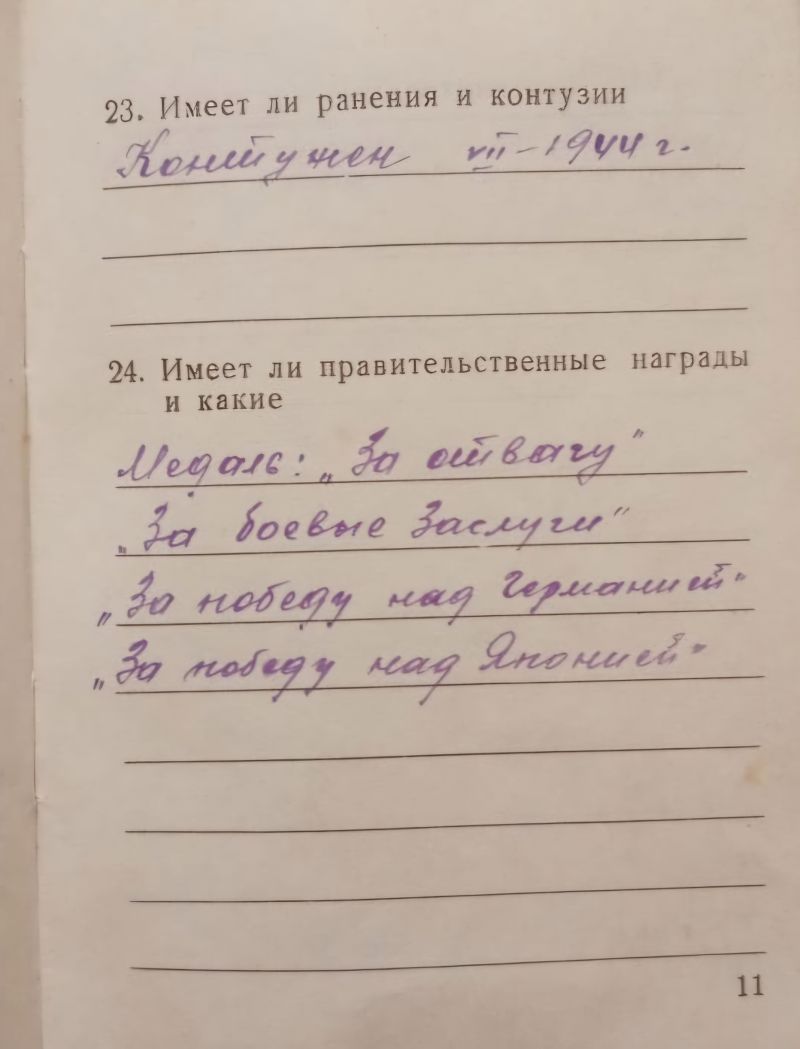 23. Имеет ли ранения и контузии
Контужен VII-1944 г.
24. Имеет ли правительственные награды
и какие
Медаль: „За отвагу"
„За боевые Заслуги"
„За победу над Германией"
„За победу над Японией"
11